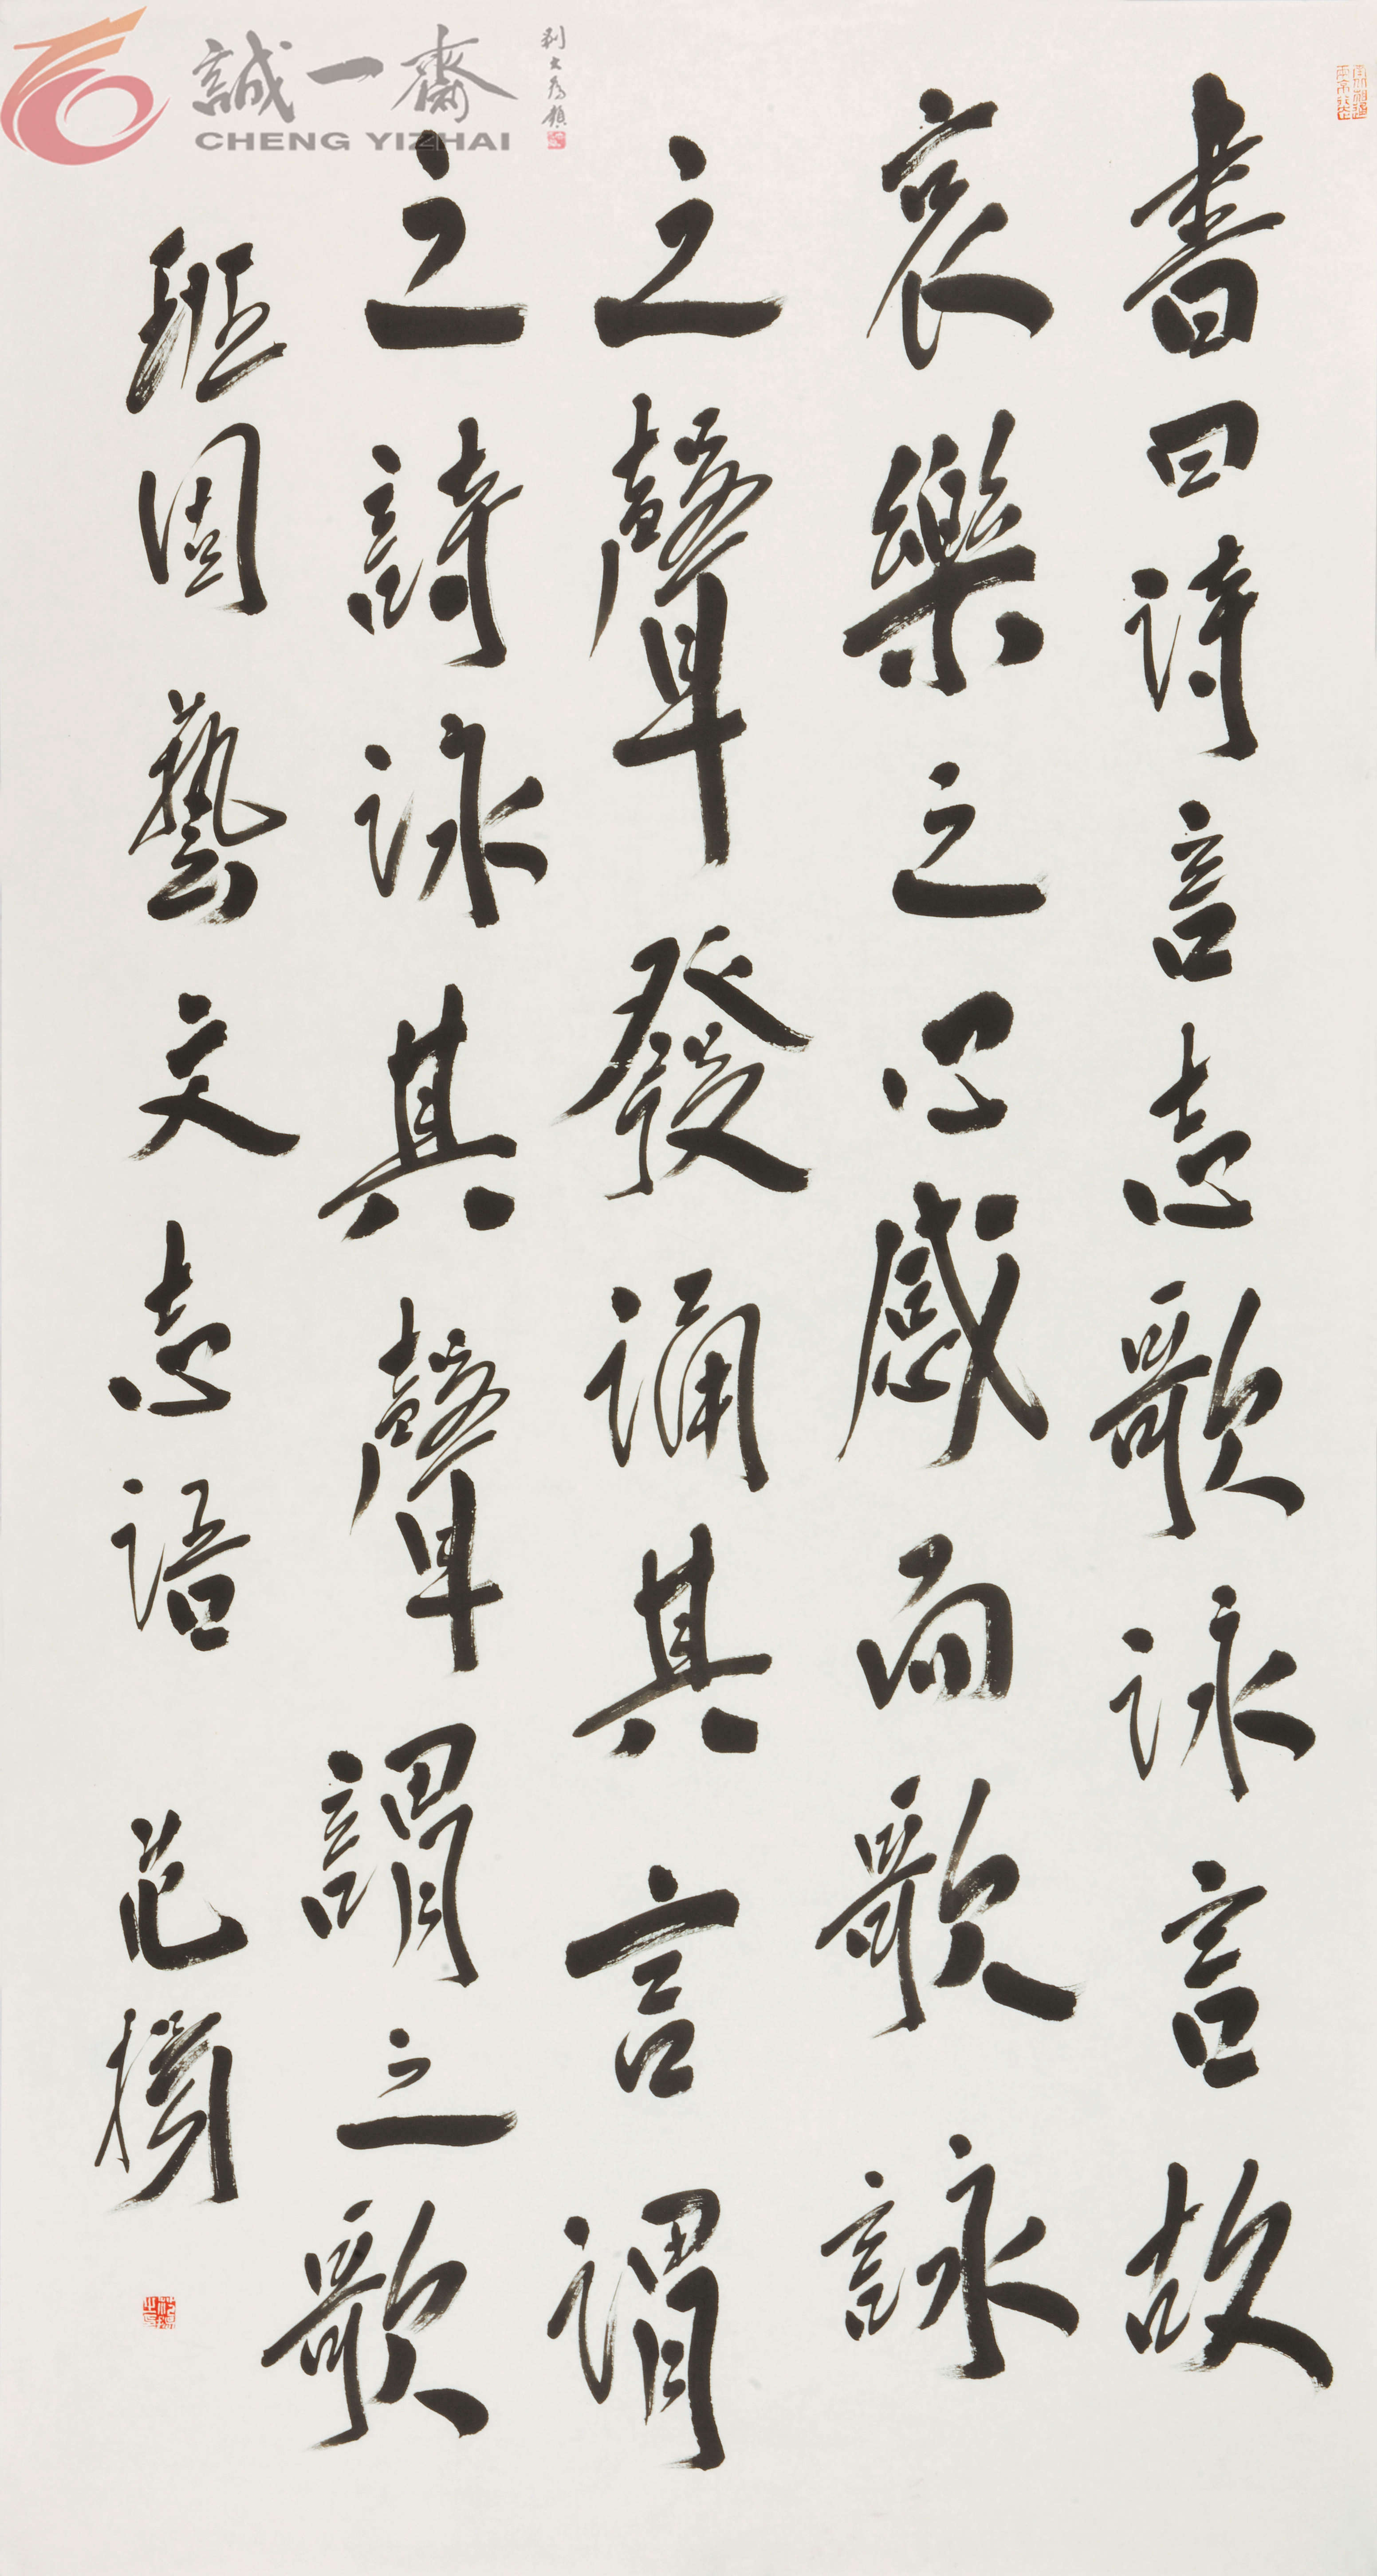 書曰诗言志歌詠言故
哀樂之心感而歌詠
之聲發誦其言謂
之詩詠其聲謂之歌
班固藝文志語
誠一齋
CHENG YIZHAI